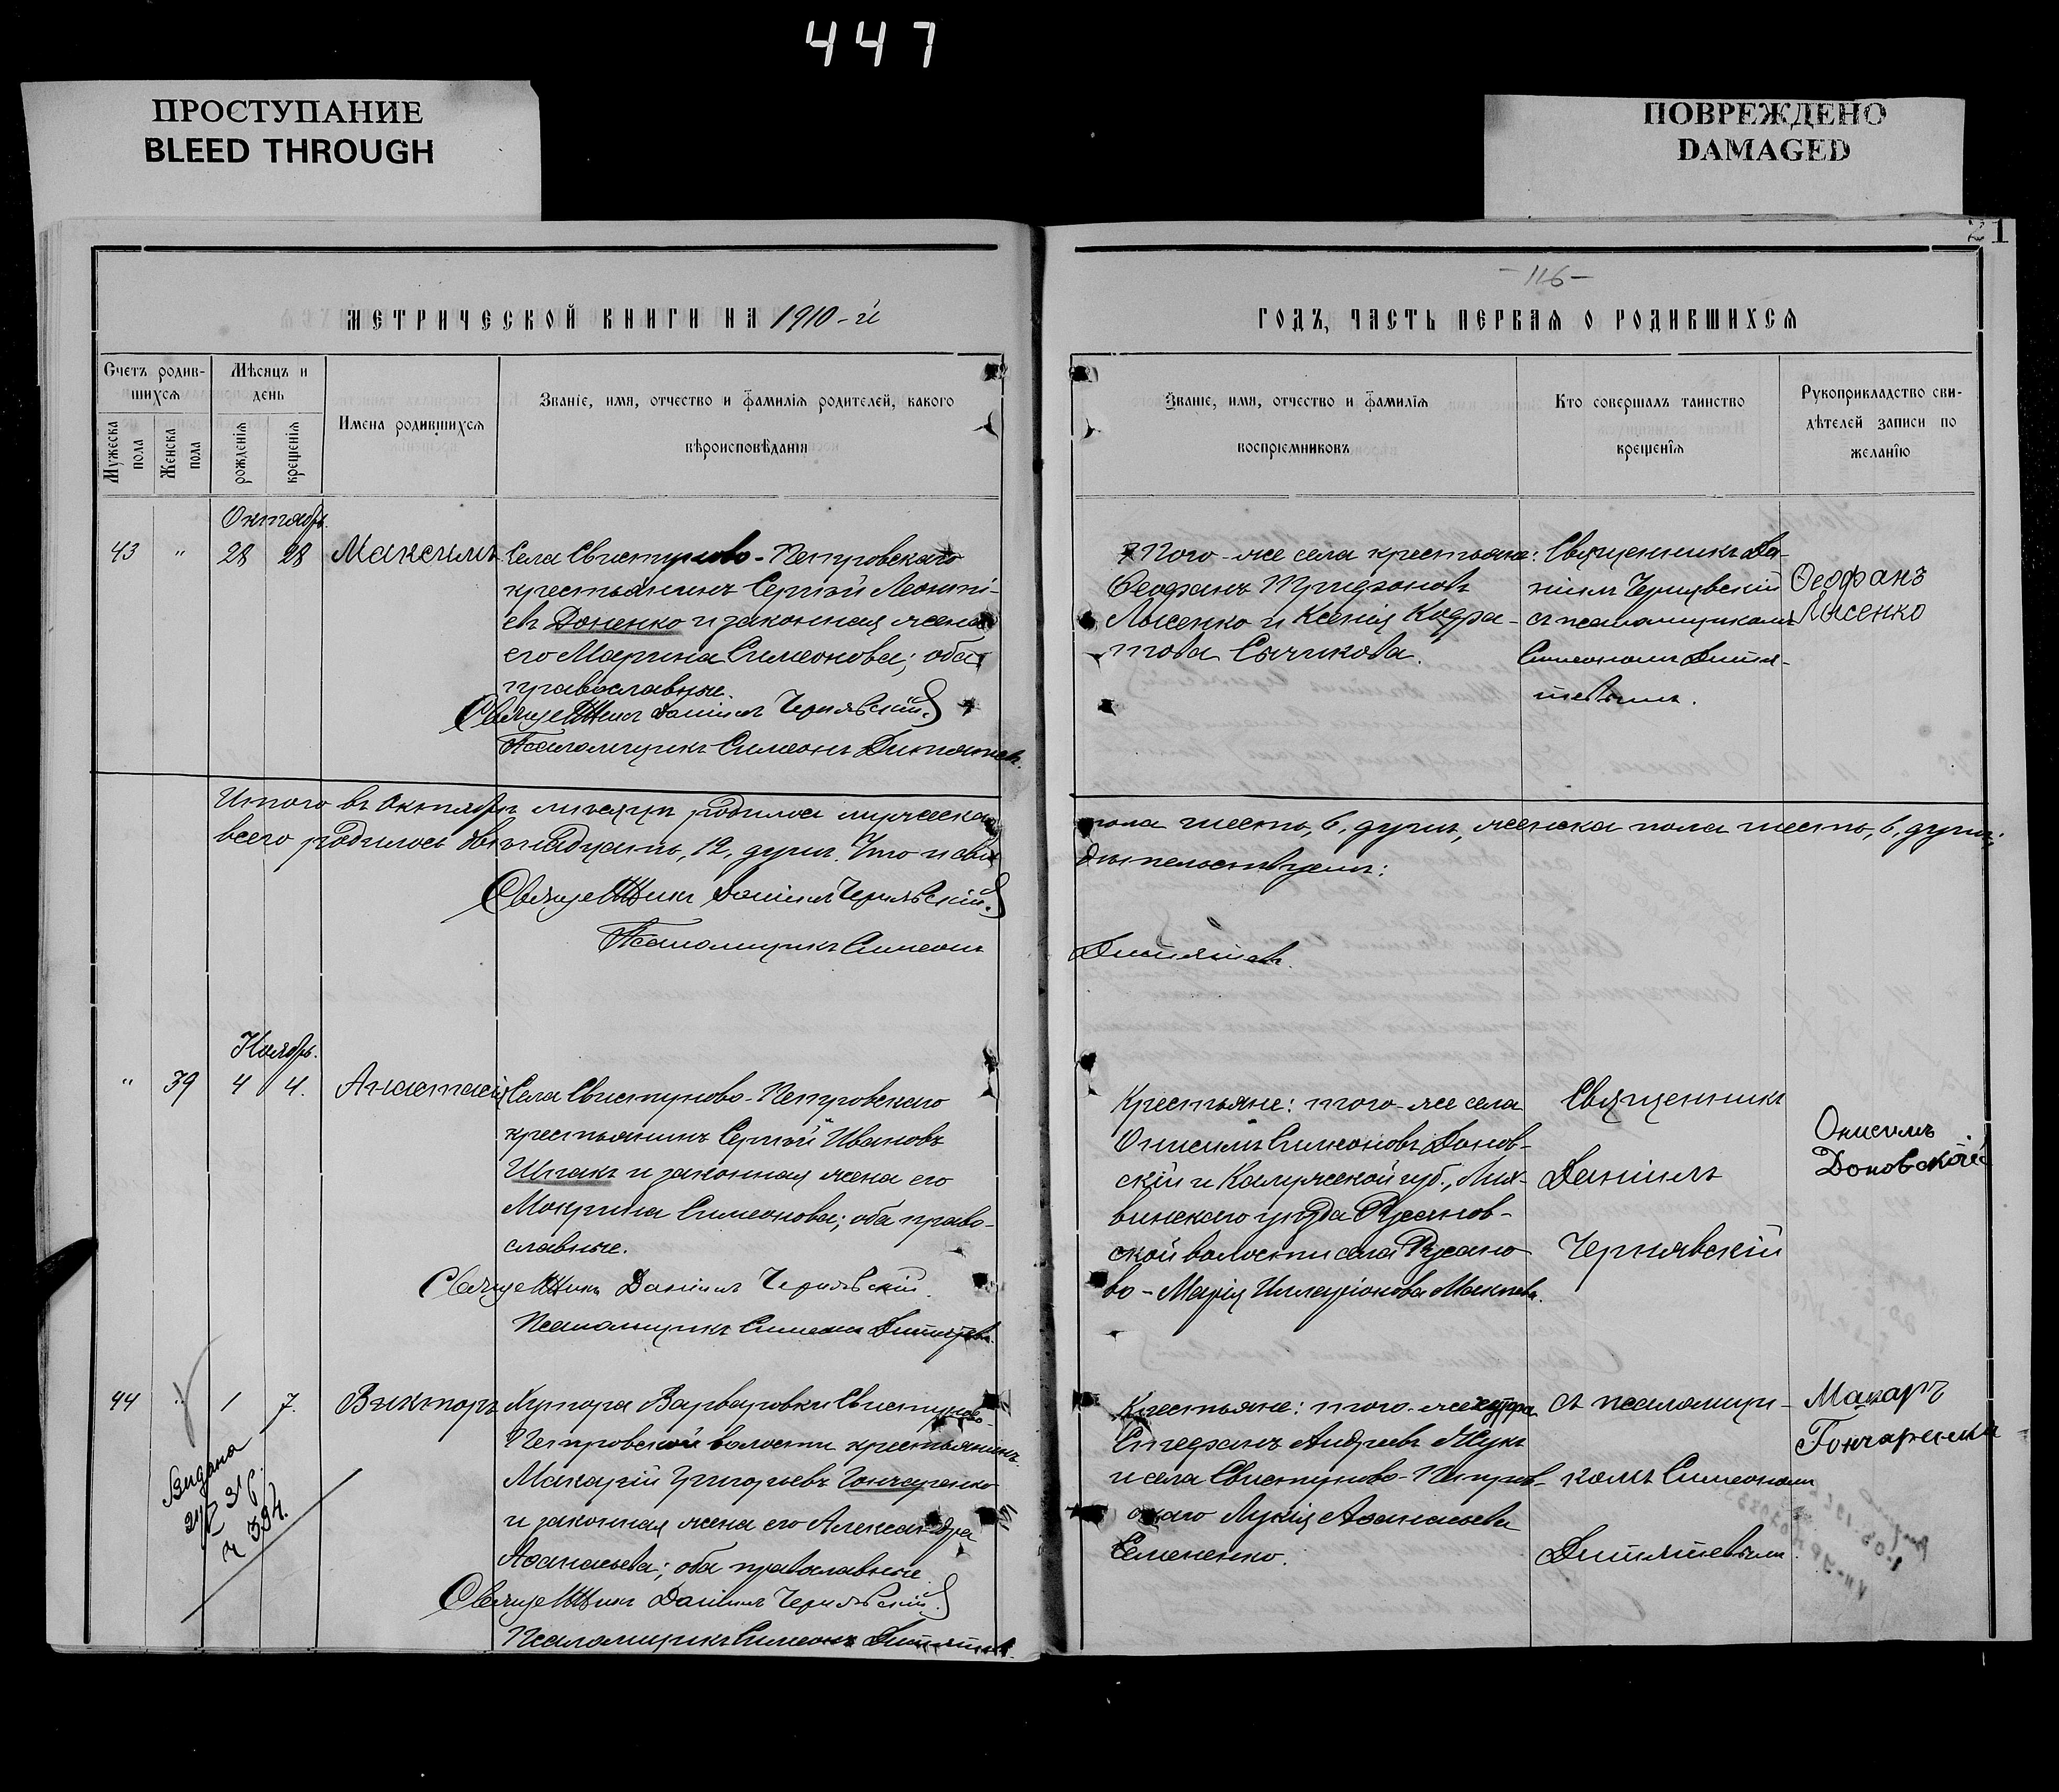 447
ПРОСТУПАНИЕ
BLEED THROUGH
ПОВРЕЖДЕНО
DAMAGED
21
-116-
МЕТРИЧЕСКОЙ КНИГИ НА 1910-й
ГОДЪ, ЧАСТЬ ПЕРВАЯ О РОДИВШИХСЯ
Счетъ родив-
шихся
Мужеска пола
Женска пола
Мѣсяцъ и
день
рожденія
крещенія
Имена родившихся
Званіе, имя, отчество и фамилія родителей, какого
вѣроисповѣданія
Званіе, имя, отчество и фамилія
воспріемниковъ
Кто совершалъ таинство
крещенія
Рукоприкладство сви-
дѣтелей записи по
желанію
Октябрь.
43 " 28 28 Максимъ
Села Свистуново-Петровскаго
крестьянинъ Сергѣй Леонті-
евъ Доненко и законная жена
его Марина Симеонова; оба
православные.
Священникъ Даніилъ Чернявскій.
Псаломщикъ Симеонъ Дитятевъ.
Того-же села крестьяне:
Ѳеофанъ Трифоновъ
Лысенко и Ксенія Кодра-
това Сычикова.
Священникъ Да-
ніилъ Чернявскій
съ псаломщикомъ
Симеономъ Дитя-
тевымъ.
Ѳеофанъ
Лысенко
Итого въ Октябрѣ мѣсяцѣ родилось мужеска
пола шесть, 6, душъ, женска пола шесть, 6, душъ;
всего родилось двѣнадцать, 12, душъ. Что и сви
дѣтельствуемъ:
Священникъ Даніилъ Чернявскій.
Псаломщикъ Симеонъ
Дитятевъ.
Ноябрь.
" 39 4 4. Анастасія
Села Свистуново-Петровскаго
крестьянинъ Сергѣй Ивановъ
Шпакъ и законная жена его
Мокрина Симеонова; оба право-
славные.
Священникъ Даніилъ Чернявскій.
Псаломщикъ Симеонъ Дитятевъ.
Крестьяне: того-же села
Онисимъ Симеоновъ Донов-
скій и Калужской губ., Лих-
винскаго уѣзда Русанов-
ской волости села Русано
во - Марія Илларіонова
Священникъ
Даніилъ
Чернявскій
Онисимъ
Доновской
44 " 1 7. Викторъ
Хутора Варваровки Свистуново-
Петровской волости крестьянинъ
Макарій Григорьевъ Гончаренко
и законная жена его Александра
Аѳанасьева; оба православные.
Священникъ Даніилъ Чернявскій.
Псаломщикъ Симеонъ Дитятевъ.
Крестьяне: того-же хутора
Стефанъ Андреевъ Жукъ
и села Свистуново-Петров-
скаго Лукія Аѳанасьева
Семененко.
съ псаломщи-
комъ Симеономъ
Дитятевымъ.
Макаръ
Гончаренко
Видана